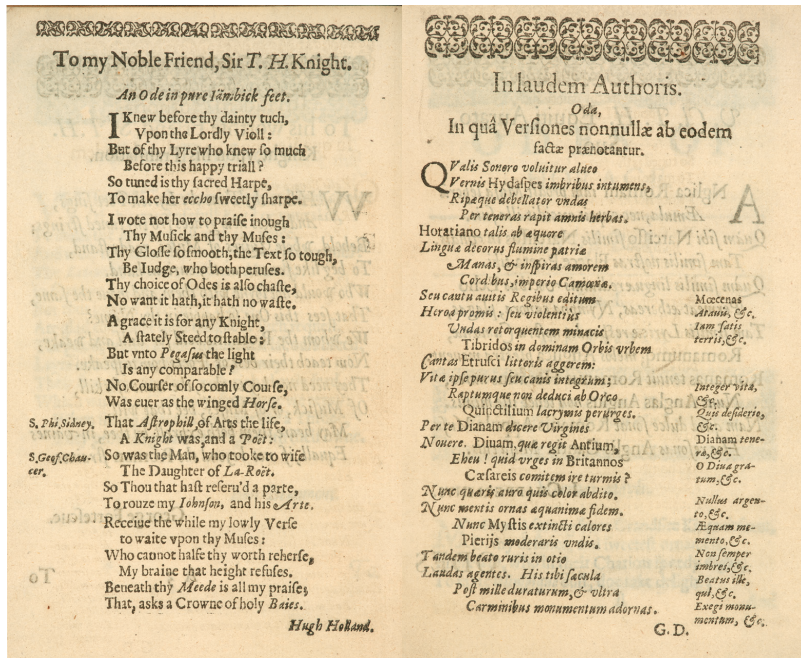 To my Noble Friend, Sir T. H. Knight.
An Ode in pure Iambick feet.
I Knew before thy dainty tuch,
Vpon the Lordly Violl:
But of thy Lyre who knew so much
Before this happy triall?
So tuned is thy sacred Harpe,
To make her eccho sweetly sharpe.
I wote not how to praise inough
Thy Musick and thy Muses:
Thy Glosse so smooth, the Text so tough,
Be Iudge, who both peruses.
Thy choice of Odes is also chaste,
No want it hath, it hath no waste.
A grace it is for any Knight,
A stately Steed to stable:
But vnto Pegasus the light
Is any comparable?
No Courser of so comly Course,
Was euer as the winged Horse.
S. Phi. Sidney. That Astrophill, of Arts the life,
A Knight was, and a Poët:
S. Geof. Chau- So was the Man, who tooke to wife
cer. The Daughter of La-Roët.
So Thou that hast reseru'd a parte,
To rouze my Iohnson, and his Arte.
Receiue the while my lowly Verse
to waite vpon thy Muses:
Who cannot halfe thy worth reherse,
My braine that height refuses.
Beneath thy Meede is all my praise,
That, asks a Crowne of holy Baies.
Hugh Holland.
To
In laudem Authoris.
Oda,
In quâ Versiones nonnullæ ab eodem
factæ prænotantur.
QValis Sonoro voluitur alueo
Vernis Hydaspes imbribus intumens,
Ripæque debellator vndas
Per teneras rapit amnis herbas.
Horatiano talis ab æquore
Linguæ decorus flumine patriæ
Manas, & inspiras amorem
Cordibus, imperio Camœnæ.
Seu cantu auitis Regibus editum Mœcenas
Heroa promis: seu violentiùs Atauis, &c.
Vndas retorquentem minacis Iam satis
Tibridos in dominam Orbis vrbem terris, &c.
Cantas Etrusci littoris aggerem:
Vitæ ipse purus seu canis integrum; Integer vitæ,
Raptumque non deduci ab Orco &c.
Quinctilium lacrymis perurges. Quis desiderio,
Per te Dianam dicere Virgines &c.
Nouere. Diuam, quæ regit Antium, Dianam tene-
Eheu! quid vrges in Britannos ræ, &c.
Cæsareis comitem ire turmis? O Diua gra-
tum, &c.
Nunc quæris auro quis color abdito. Nullus argen-
Nunc mentis ornas æquanimæ fidem. to, &c.
Nunc Mystis extincti calores Æquam me-
Pierijs moderaris vndis. mento, &c.
Tandem beato ruris in otio Non semper
Laudas agentes. His tibi sæcula imbres, &c.
Post mille duraturum, & vltra Beatus ille,
qui, &c.
Carminibus monumentum adornas. Exegi monu-
mentum, &c.
G. D.